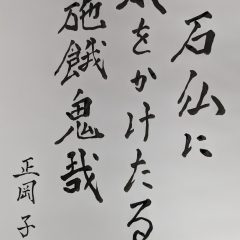 石仏に
をかけたる
施餓鬼哉
正岡子